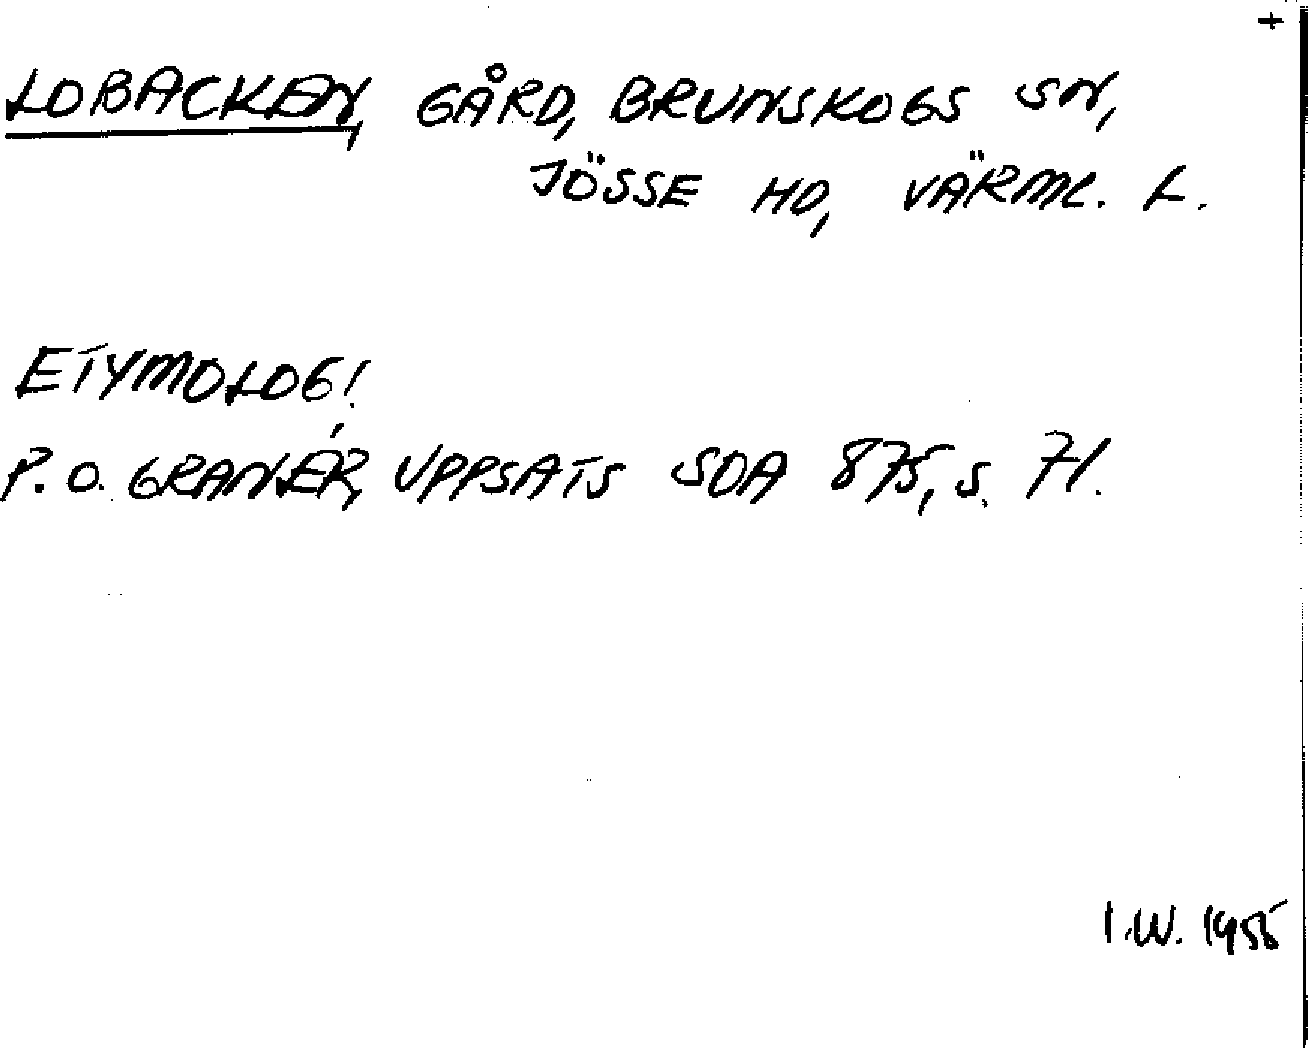 +
LOBACKEN, GÅRD, BRUNSKOGS SN,
JÖSSE HD, VÄRML. L.
ETYMOLOGI
P. O. GRANÉR, UPPSATS SOA 875, s. 71.
I.W. 1955